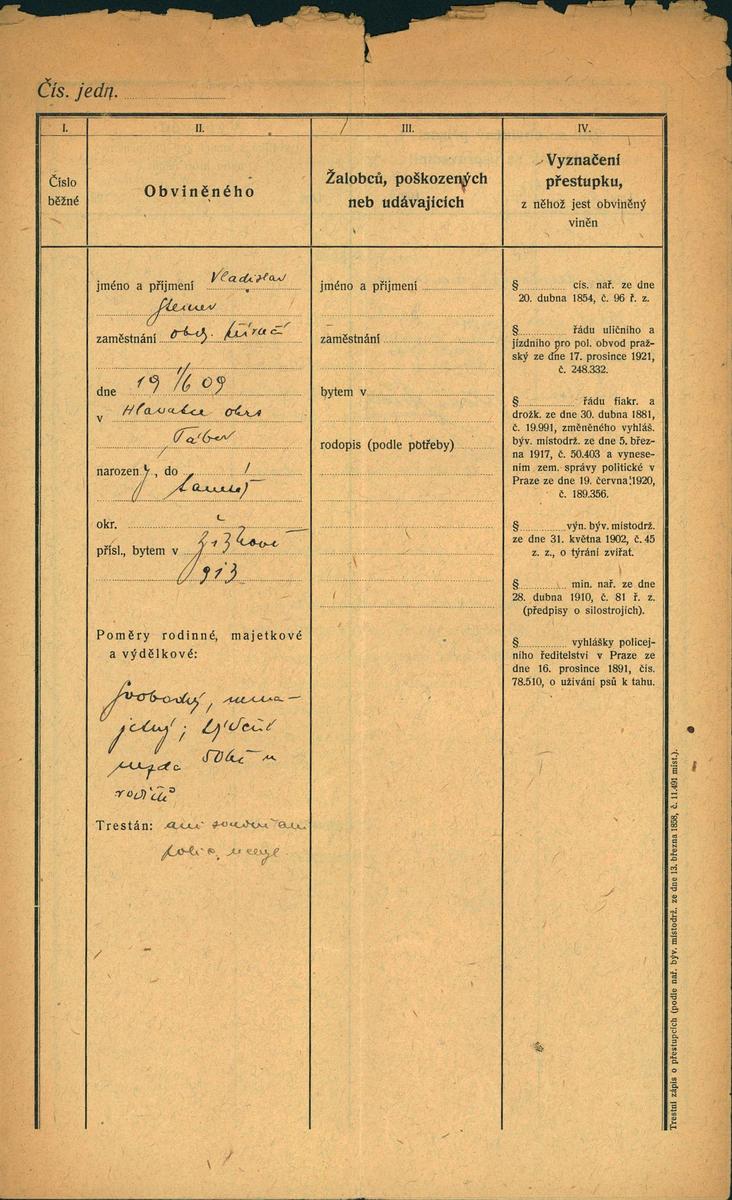 Čís. jedn.
I.
Číslo
běžné
II.
Obviněného
III.
Žalobců, poškozených
neb udávajících
IV.
Vyznačení
přestupku,
z něhož jest obviněný
viněn
jméno a příjmení Vladislav
Steiner
zaměstnání obch.
dne 19 1/6 09
v Hlavatce okrs
Tábor
narozený, do
okr.
přísl., bytem v Žižkově
913
Poměry rodinné, majetkové
a výdělkové:
Svobodný, nema-
jetný; týdení
mzda 50Kč u
rodičů
Trestán: ani soudně ani
polic.
jméno a příjmení
zaměstnání
bytem v
rodopis (podle potřeby)
§ cís. nař. ze dne
20. dubna 1854, č. 96 ř. z.
§ řádu uličního a
jízdního pro pol. obvod praž-
ský ze dne 17. prosince 1921,
č. 248.332.
§ řádu fiakr. a
drožk. ze dne 30. dubna 1881,
č. 19.991, změněného vyhláš.
býv. místodrž. ze dne 5. břez-
na 1917, č. 50.403 a vynese-
ním zem. správy politické v
Praze ze dne 19. června 1920,
č. 189.356.
§ výn. býv. místodrž.
ze dne 31. května 1902, č. 45
z. z., o týrání zvířat.
§ min. nař. ze dne
28. dubna 1910, č. 81 ř. z.
(předpisy o silostrojích).
§ vyhlášky policej-
ního ředitelství v Praze ze
dne 16. prosince 1891, čís.
78.510, o užívání psů k tahu.
Trestní zápis o přestupcích (podle nař. býv. místodrž. ze dne 13. března 1858, č. 11.491 míst.).